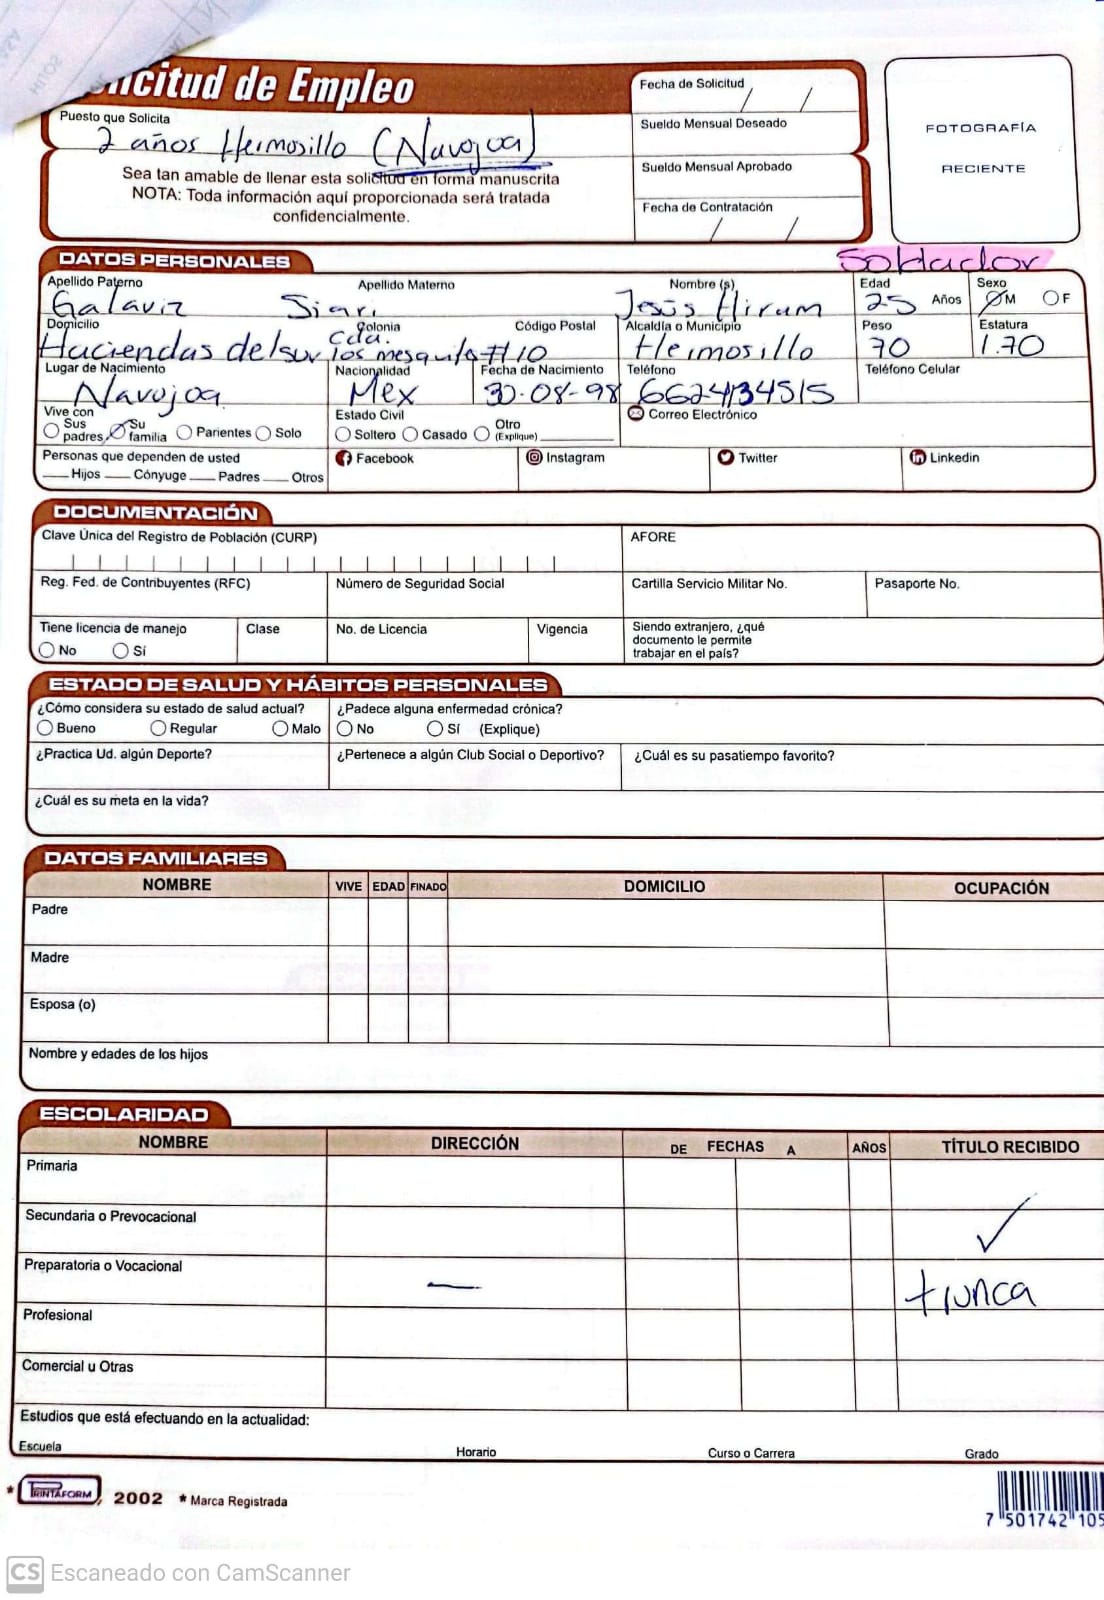 icitud de Empleo
Puesto que Solicita
2 años Hermosillo (Navojoa)
Sea tan amable de llenar esta solicitud en forma manuscrita
NOTA: Toda información aquí proporcionada será tratada
confidencialmente.
Fecha de Solicitud
/ /
Sueldo Mensual Deseado
Sueldo Mensual Aprobado
Fecha de Contratación
/ /
FOTOGRAFÍA
RECIENTE
Soldador
DATOS PERSONALES
Apellido Paterno Apellido Materno Nombre (s) Edad Sexo
Galaviz Siari Jesús Hiram 25 Años M F
Domicilio Colonia Código Postal Alcaldía o Municipio Peso Estatura
Haciendas del sur Cda. los mesquite #10 Hermosillo 70 1.70
Lugar de Nacimiento Nacionalidad Fecha de Nacimiento Teléfono Teléfono Celular
Navojoa Mex 30-08-98 6624134515
Vive con Estado Civil Correo Electrónico
Sus padres Su familia Parientes Solo Soltero Casado Otro (Explique)
Personas que dependen de usted Facebook Instagram Twitter Linkedin
Hijos Cónyuge Padres Otros
DOCUMENTACIÓN
Clave Única del Registro de Población (CURP) AFORE
Reg. Fed. de Contribuyentes (RFC) Número de Seguridad Social Cartilla Servicio Militar No. Pasaporte No.
Tiene licencia de manejo Clase No. de Licencia Vigencia Siendo extranjero, ¿qué documento le permite trabajar en el país?
No Sí
ESTADO DE SALUD Y HÁBITOS PERSONALES
¿Cómo considera su estado de salud actual? ¿Padece alguna enfermedad crónica?
Bueno Regular Malo No Sí (Explique)
¿Practica Ud. algún Deporte? ¿Pertenece a algún Club Social o Deportivo? ¿Cuál es su pasatiempo favorito?
¿Cuál es su meta en la vida?
DATOS FAMILIARES
NOMBRE VIVE EDAD FINADO DOMICILIO OCUPACIÓN
Padre
Madre
Esposa (o)
Nombre y edades de los hijos
ESCOLARIDAD
NOMBRE DIRECCIÓN DE FECHAS A AÑOS TÍTULO RECIBIDO
Primaria
Secundaria o Prevocacional ✓
Preparatoria o Vocacional — trunca
Profesional
Comercial u Otras
Estudios que está efectuando en la actualidad:
Escuela Horario Curso o Carrera Grado
* PRINTAFORM, 2002 * Marca Registrada
7 501742 105
CS Escaneado con CamScanner